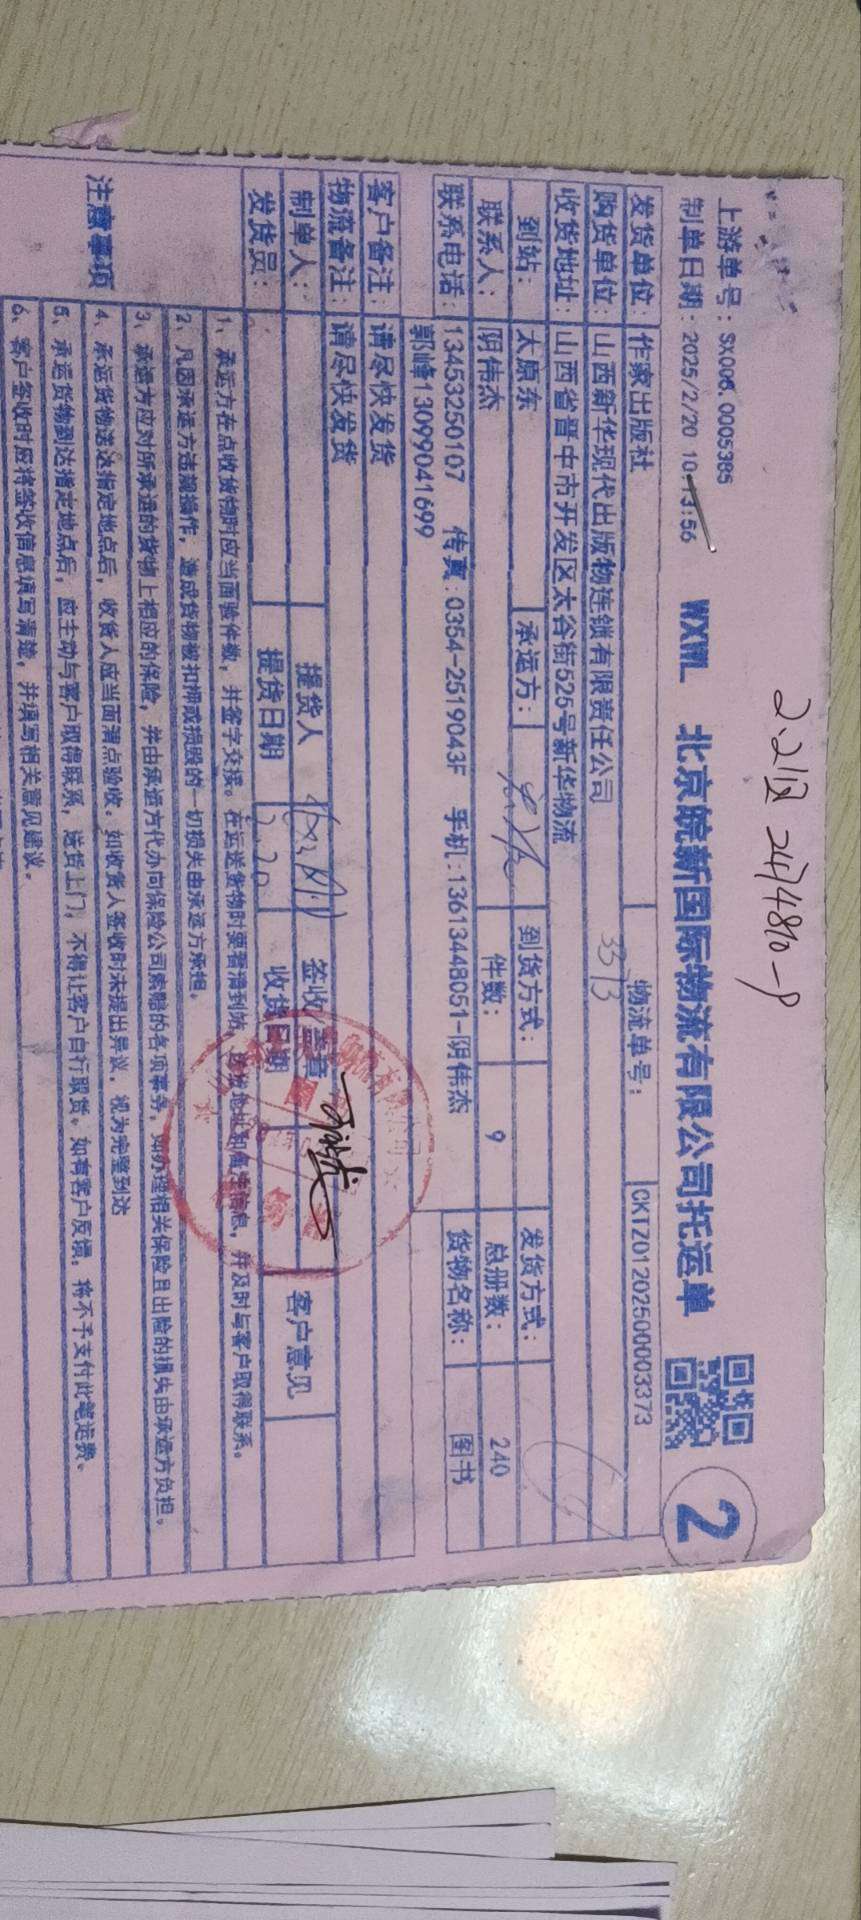 上游单号：SX006.0005385
制单日期：2025/2/20 10:13:56
WXWL 北京皖新国际物流有限公司托运单
2
发货单位：作家出版社 物流单号：CKTZ0120250003373
购货单位：山西新华现代出版物连锁有限责任公司 3373
收货地址：山西省晋中市开发区太谷街525号新华物流
到站：太原东 承运方： 到货方式： 发货方式：
联系人：阴伟杰 件数：9 总册数：240
联系电话：13453250107 传真:0354-2519043F 手机:13613448051-阴伟杰 货物名称：图书
郭峰13099041699
客户备注：请尽快发货
物流备注：请尽快发货
制单人： 提货人 签收/盖章 客户意见
发货员： 提货日期 2.20 收货日期
注意事项
1、承运方在点收货物时应当面验件数，并签字交接。在运送货物时要看清到站、到货地址和备注信息，并及时与客户取得联系。
2、凡因承运方违规操作，造成货物被扣押或损毁的一切损失由承运方承担。
3、承运方应对所承运的货物上相应的保险，并由承运方代办向保险公司索赔的各项事务。如办理相关保险且出险的损失由承运方负担。
4、承运货物送达指定地点后，收货人应当面清点验收。如收货人签收时未提出异议，视为完整到达
5、承运货物到达指定地点后，应主动与客户取得联系，送货上门，不得让客户自行取货。如有客户反馈，将不予支付此笔运费。
6、客户签收时应将签收信息填写清楚，并填写相关意见建议。